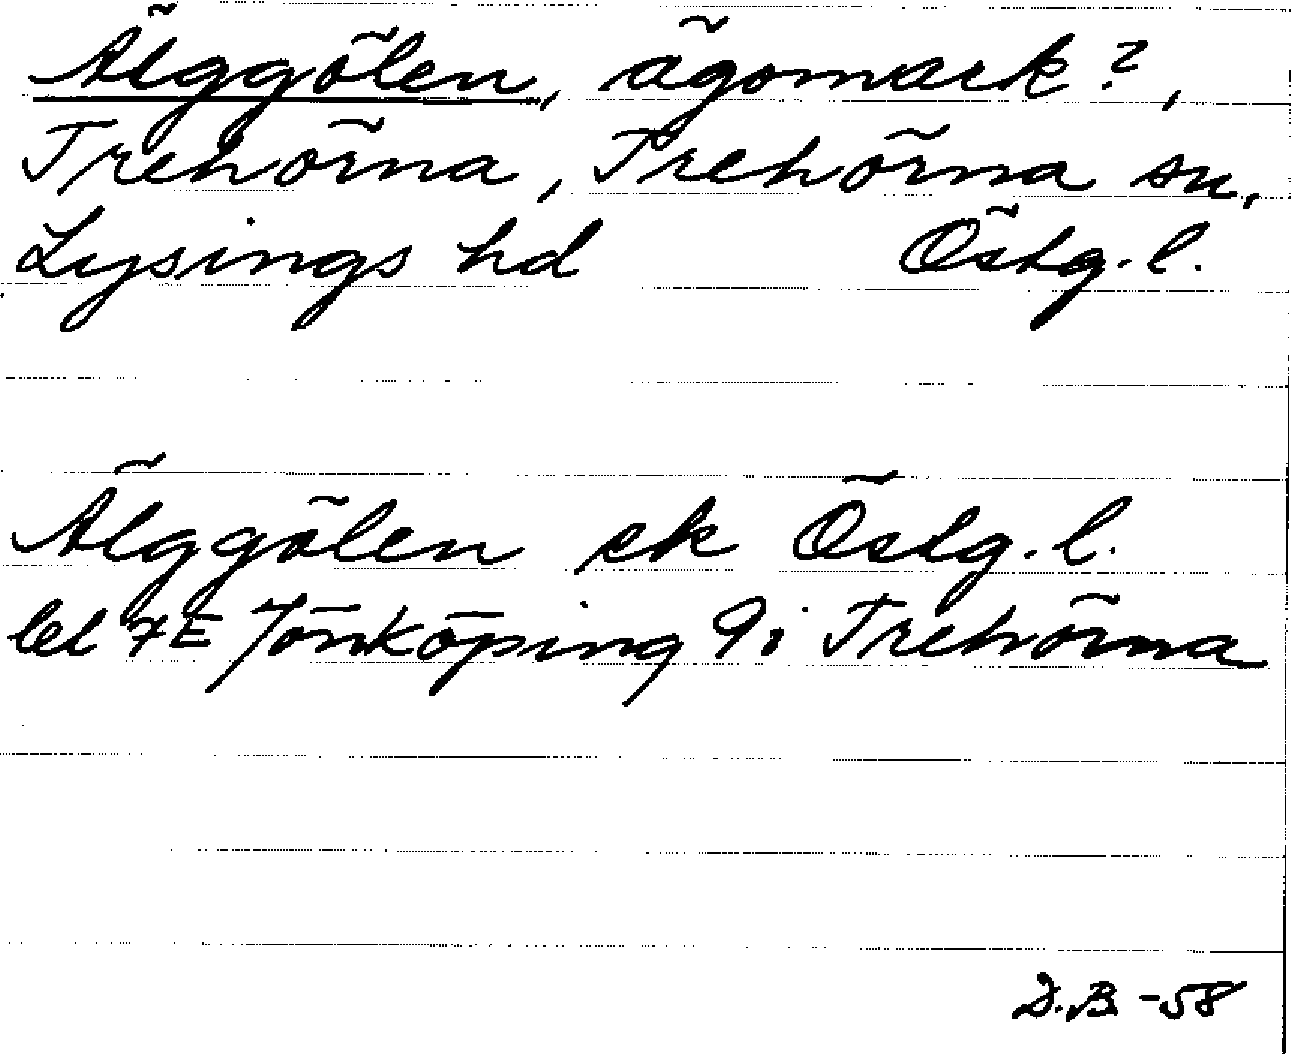 Älggölen, ägomark?,
Trehörna, Trehörna sn,
Lysings hd Östg.l.
Älggölen ek Östg.l.
bl 7E Jönköping 9i Trehörna
D.B. -58